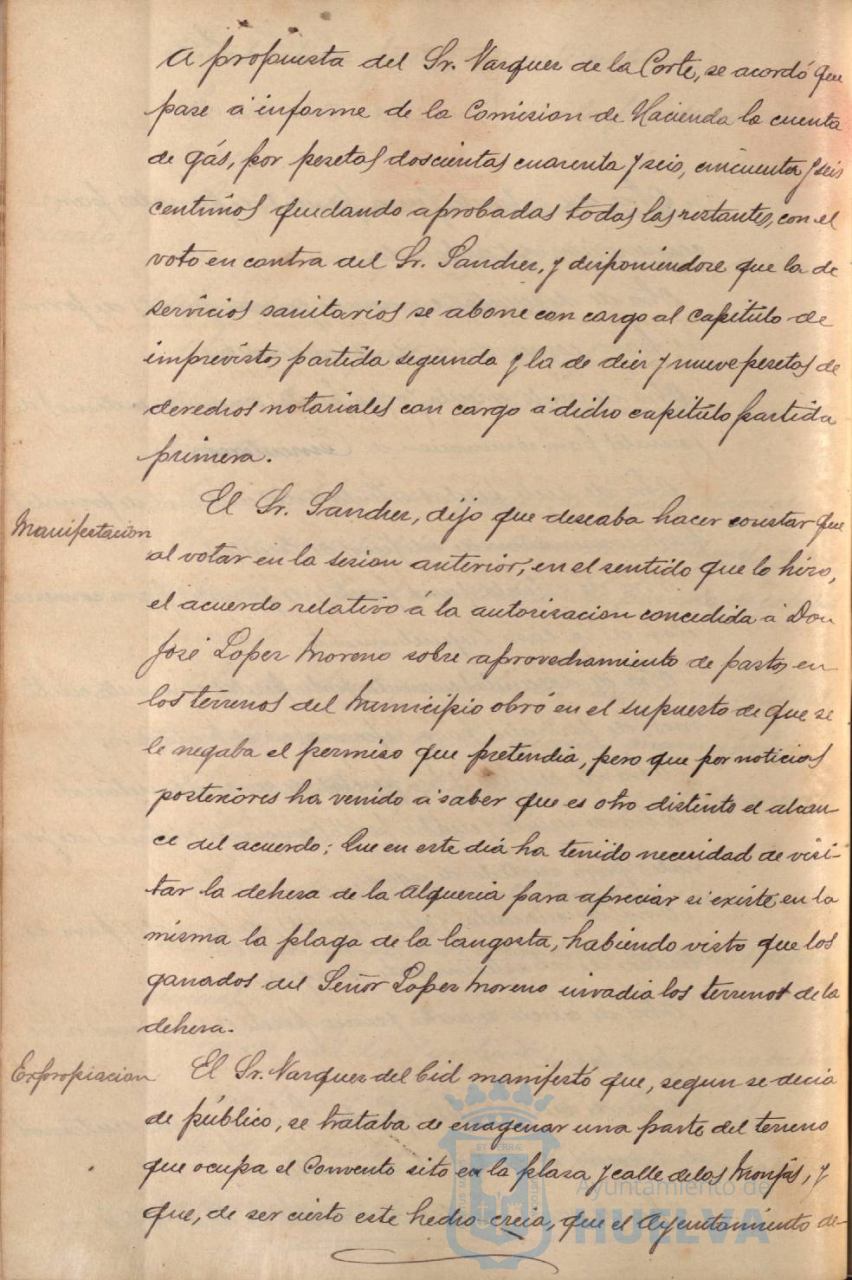 A propuesta del Sr. Vazquez de la Corte, se acordó que
pase á informe de la Comision de Hacienda la cuenta
de gás, por pesetas doscientas cuarenta y seis, cincuenta y seis
centimos quedando aprobadas todas las restantes, con el
voto en contra del Sr. Sanchez, y disponiendose que la de
servicios sanitarios se abone con cargo al capitulo de
imprevistos partida segunda y la de diez y nueve pesetas de
derechos notariales con cargo á dicho capitulo partida
primera.
Manifestacion
El Sr. Sanchez, dijo que deseaba hacer constar que
al votar en la sesion anterior, en el sentido que lo hizo,
el acuerdo relativo á la autorizacion concedida á Don
José Lopez Moreno sobre aprovechamiento de pastos en
los terrenos del Municipio obró en el supuesto de que se
le negaba el permiso que pretendia, pero que por noticias
posteriores ha venido á saber que es otro distinto el alcan-
ce del acuerdo; Que en este dia ha tenido necesidad de visi-
tar la dehesa de la Alqueria para apreciar si existe en la
misma la plaga de la langosta, habiendo visto que los
ganados del Señor Lopez Moreno invadia los terrenos de la
dehesa.
Expropiacion
El Sr. Vazquez del Cid manifestó que, segun se decia
de público, se trataba de enagenar una parte del terreno
que ocupa el Convento sito en la plaza y calle de las Monjas, y
que, de ser cierto este hecho creia, que el Ayuntamiento de-
Ayuntamiento de
HUELVA